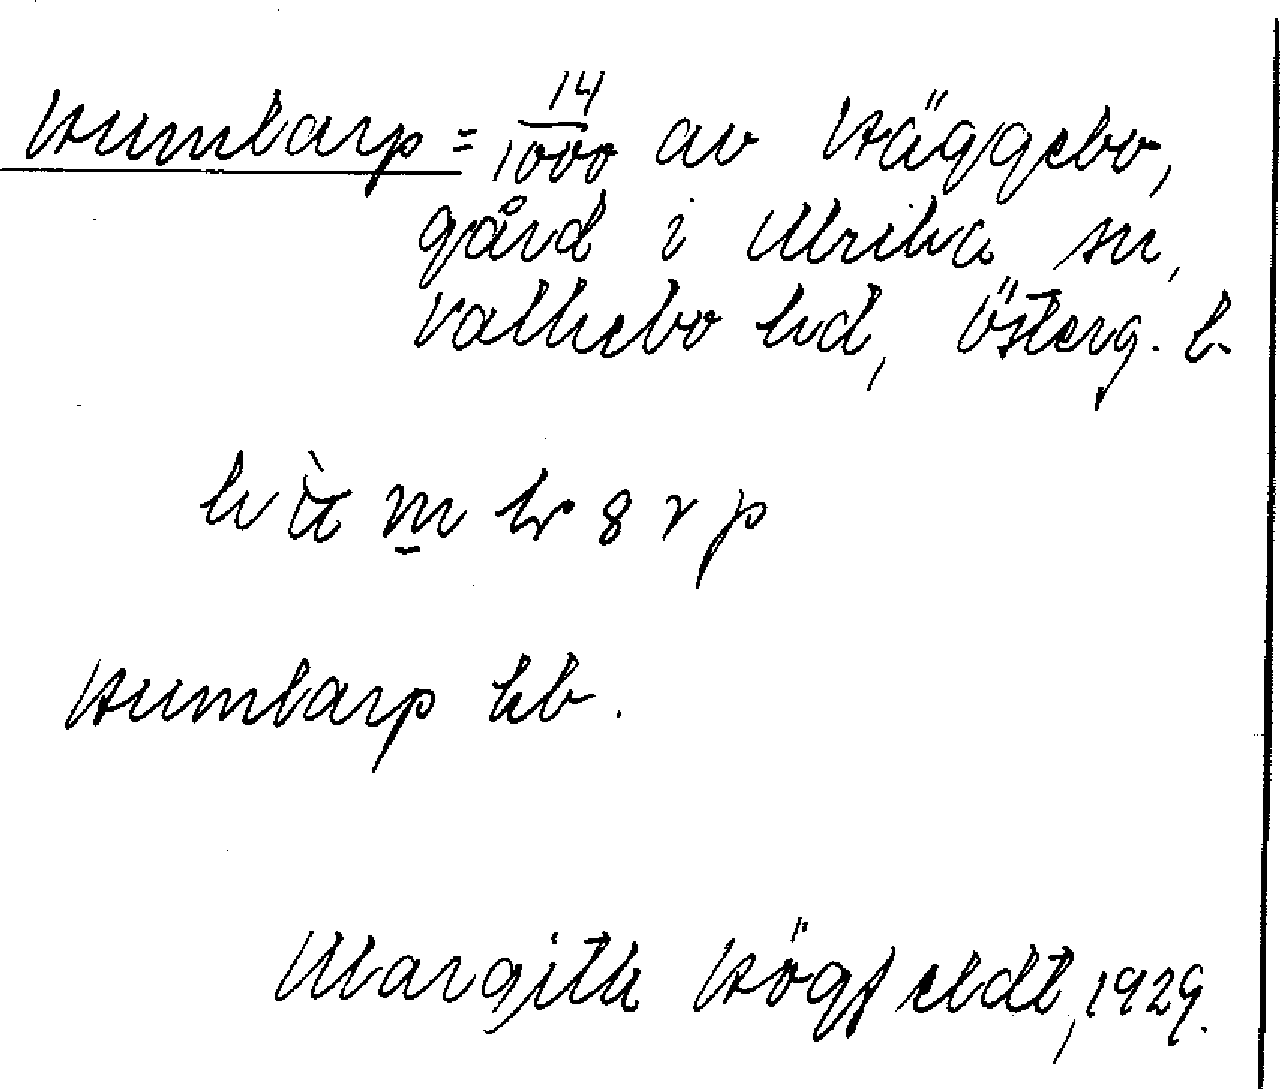 Humbarp = 14/1000 av Häggebo,
gård i Ulrika sn,
Valkebo hd, Österg. l.
Humbarp kb.
Margith Högfeldt, 1929.